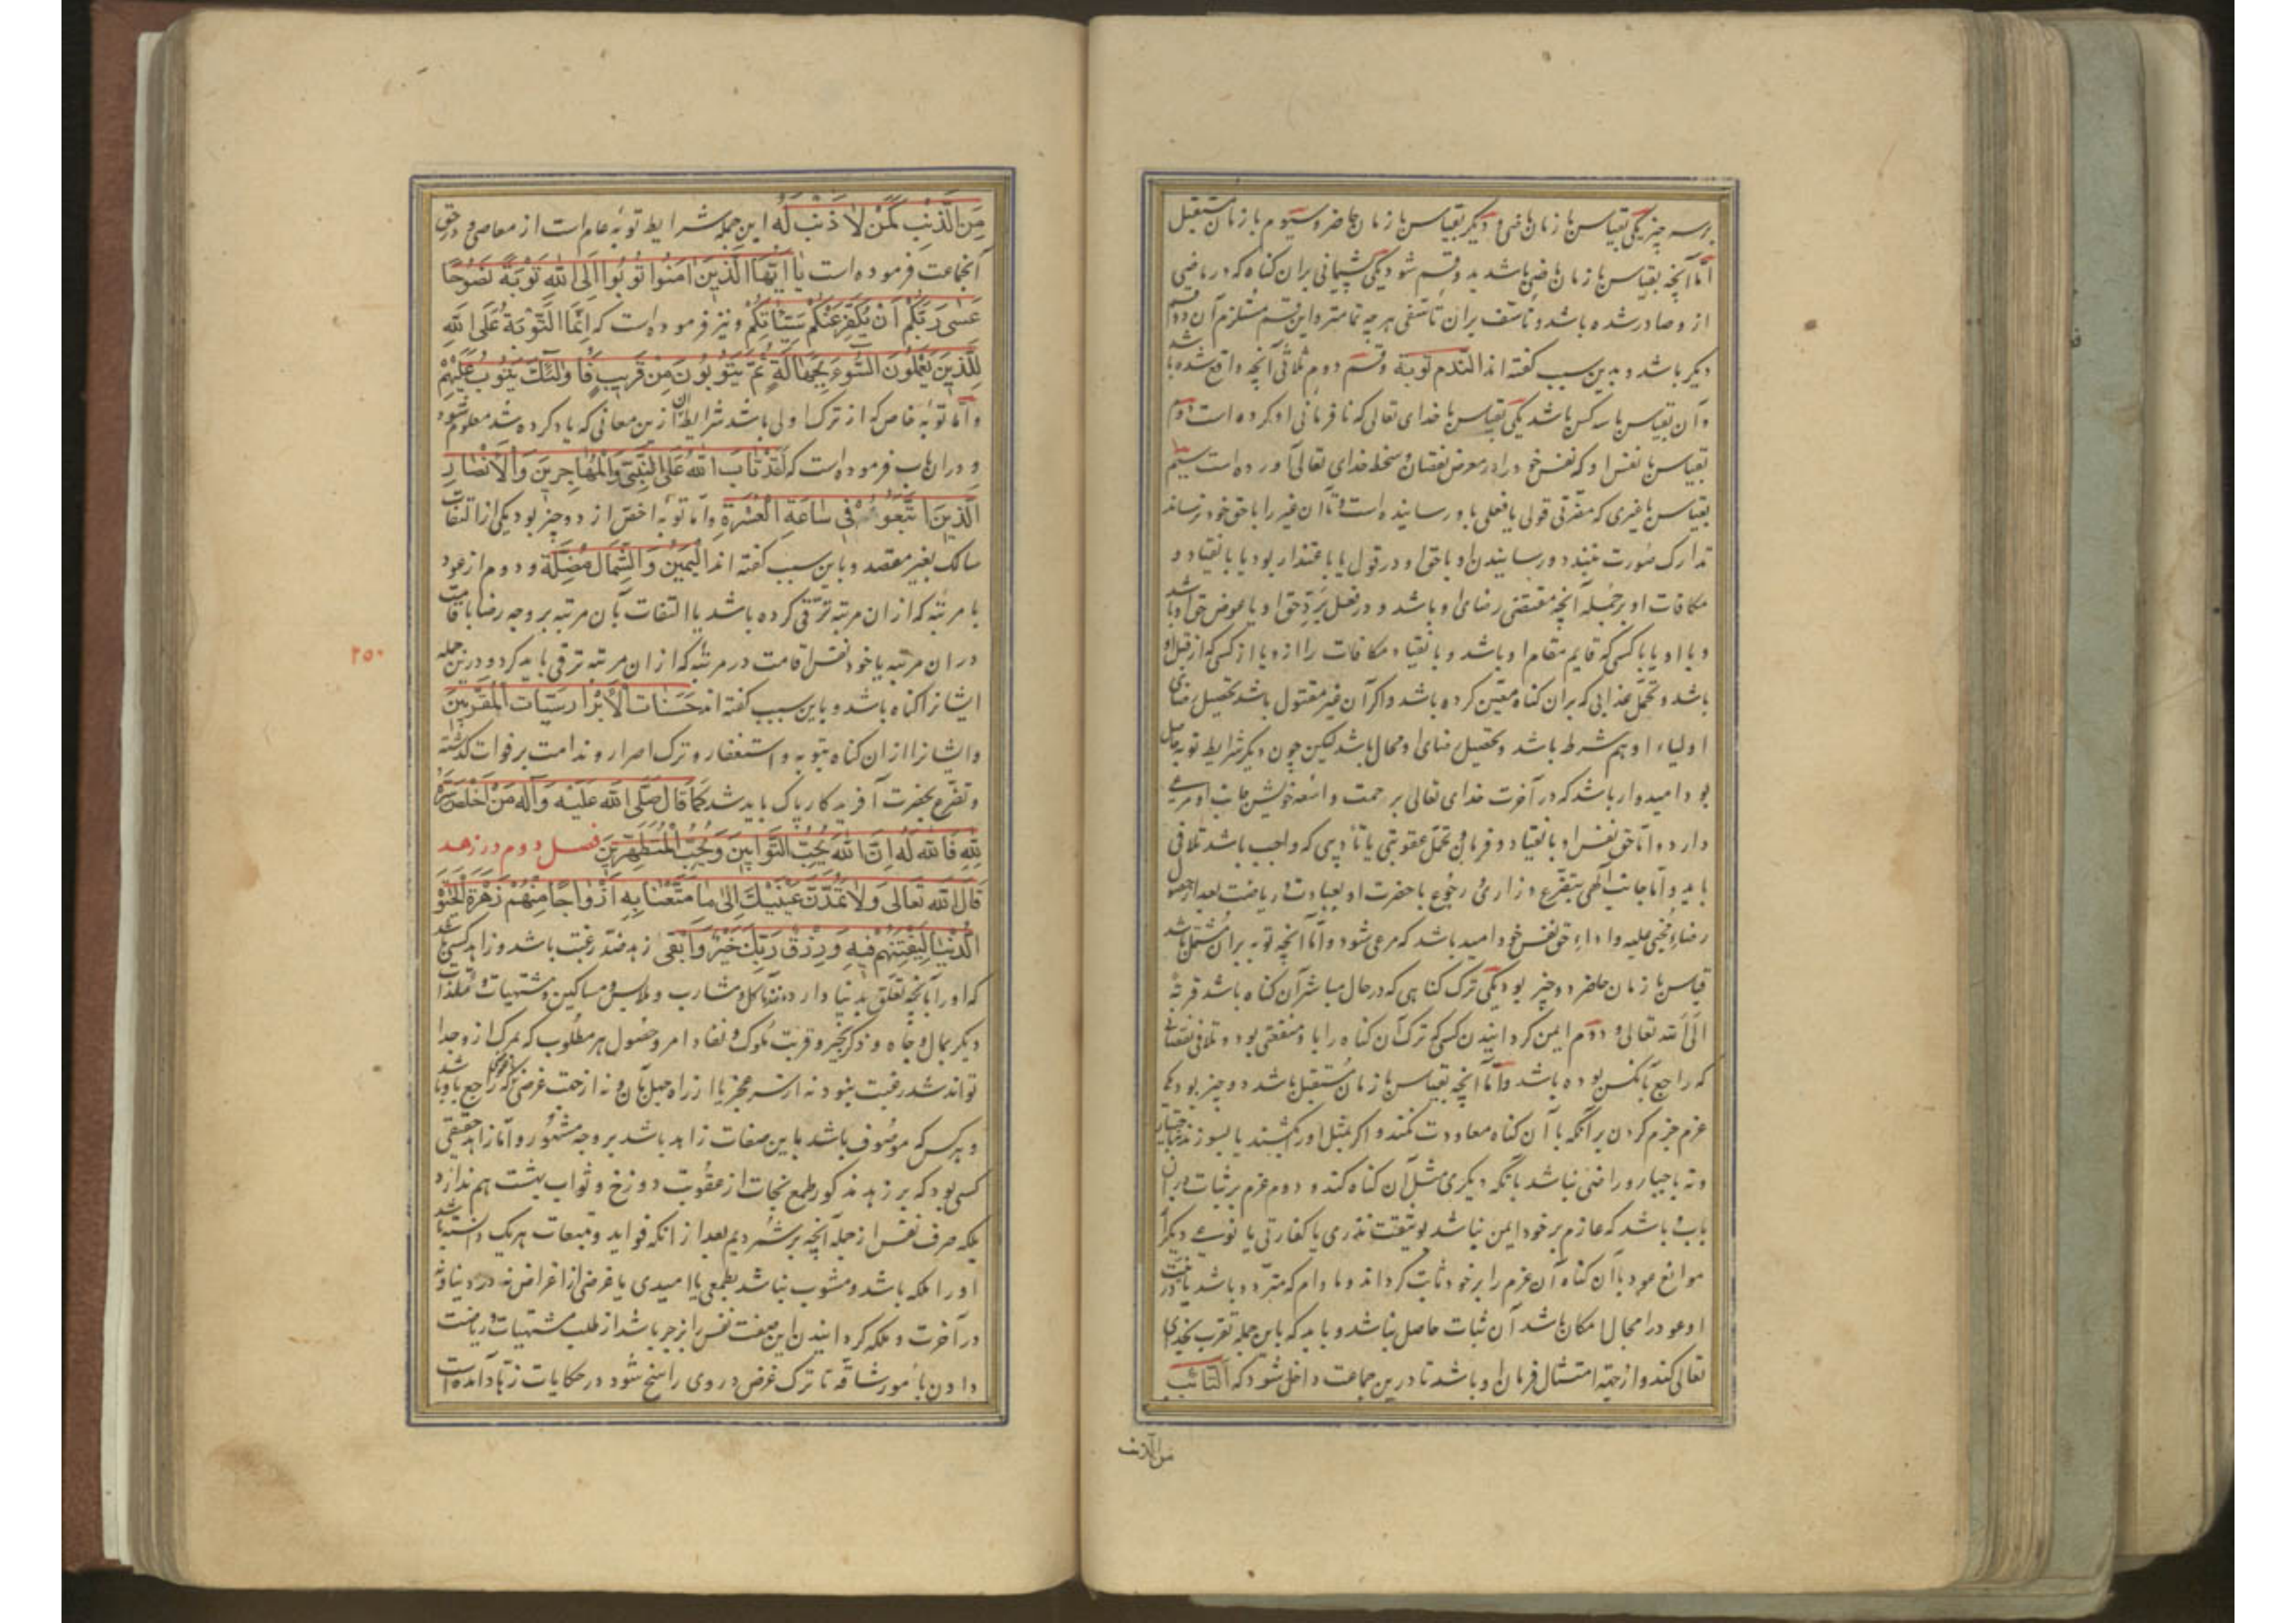 بر سه چیز یکی بقیاس با زمان ماضی و دیگر بقیاس با زمان حاضر و سیوم با زمان مستقبل
اما آنچه بقیاس با زمان ماضی باشد بدو قسم شود یکی پشیمانی بران کناه که در ماضی
ازو صادر شده باشد و تاسف بران تاسفی هر چه تمامتر و این قسم مستلزم آن دو قسم
دیکر باشد و بدین سبب کفته اند الندم توبة و قسم دوم تلافی آنچه واقع شده باشد
و آن بقیاس با سه کس باشد یکی بقیاس با خدای تعالی که نافرمانی او کرده است دوم
بقیاس با نفس او که نفس خود را در معرض نقصان و سخط خدای تعالی آورده است سیم
بقیاس با غیری که مضرتی قولی یا فعلی باو رسانیده است و تا آن غیر را با حق خود نرساند
تدارک صورت نبندد و رسانیدن او با حق او در قول یا باعتذار بود یا بانقیاد و
مکافات او بر جمله آنچه مقتضی رضای او باشد و در فعل برد حق او یا عوض حق او باشد
و با او یا با کسی که قایم مقام او باشد و بانقیاد مکافات را ازو یا از کسی که از قبل او
باشد و تحمل عذابی که بران کناه معین کرده باشد و اکر آن غیر مقتول باشد تحصیل رضای
اولیاء او هم شرط باشد و تحصیل رضای او محال باشد لیکن چون دیکر شرایط توبه حاصل
بود امیدوار باشد که در آخرت خدای تعالی برحمت واسعه خویش جانب او مرعی
دارد و اما حق نفس او بانقیاد و فرمان و تحمل عقوبتی یا تأدیبی که واجب باشد تلافی
باید و اما جانب الهی بتضرع و زاری و رجوع با حضرت او بعبادت و ریاضت بعد از حصول
رضاء مجنی علیه و اداء حق نفس خود امید باشد که مرعی شود و اما آنچه توبه بران مشتمل باشد
قیاس با زمان حاضر دو چیز بود یکی ترک کناهی که در حال مباشر آن کناه باشد قربة
الی الله تعالی و دوم ایمن کردانیدن کسی که ترک آن کناه را با او منفعتی بود و تلافی نقصانی
که راجع بآنکس بوده باشد و اما آنچه بقیاس با زمان مستقبل باشد دو چیز بود یکی
عزم جزم کردن بر آنکه با آن کناه معاودت نکند و اکر بمثل او را بکشند یا بسوزند نه باختیار
و نه باجبار و راضی نباشد بآنکه دیکری مثل آن کناه کند و دوم عزم بر ثبات دران
باب و باشد که عازم بر خود ایمن نباشد بوثیقت نذری یا کفارتی یا نوعی دیکر از
موانع عود بآن کناه آن عزم را بر خود ثابت کرداند و مادام که متردد باشد یا در نیت
او عود را مجال امکان باشد آن ثبات حاصل نباشد و باید که باین جمله تقرب بخدای
تعالی کند و از جهة امتثال فرمان او باشد تا درین جماعت داخل شود که التائب
من الذنب
من الذنب کمن لا ذنب له این جمله شرایط توبهٔ عام است از معاصی و در حق
آنجماعت فرموده است یا ایها الذین امنوا توبوا الی الله توبة نصوحا
عسی ربکم ان یکفر عنکم سیئاتکم و نیز فرموده است که انما التوبة علی الله
للذین یعملون السوء بجهالة ثم یتوبون من قریب فاولئک یتوب علیهم
و اما توبهٔ خاص که از ترک اولی باشد شرایط آن ازین معانی که یاد کرده شد معلوم شود
و دران باب فرموده است که لقد تاب الله علی النبی والمهاجرین والانصار
الذین اتبعوه فی ساعة العسرة و اما توبهٔ اخص از دو چیز بود یکی از التفات
سالک بغیر مقصد و باین سبب کفته اند الیمین والشمال مضلة و دوم از عود
با مرتبهٔ که ازان مرتبه ترقی کرده باشد با التفات بآن مرتبه بر وجه رضا باقامت
دران مرتبه یا خود نفس اقامت در مرتبهٔ که ازان مرتبه ترقی باید کرد و درین جمله
۲۵۰
ایشانرا کناه باشد و باین سبب کفته اند حسنات الابرار سیئات المقربین
و ایشانرا ازان کناه بتوبه و استغفار و ترک اصرار و ندامت بر فوات کذشته
و تضرع بحضرت آفریدکار پاک باید شد کما قال صلی الله علیه وآله من اخلص سره
لله فالله له ان الله یحب التوابین ویحب المتطهرین فصل دوم در زهد
قال الله تعالی ولا تمدن عینیک الی ما متعنا به ازواجا منهم زهرة الحیوة
الدنیا لیفتنهم فیه ورزق ربک خیر وابقی زهد ضد رغبت باشد و زاهد کسی باشد
که او را بآنچه تعلق بدنیا دارد مانند مآکل و مشارب و ملابس و مساکن و مشتهیات و مستلذات
دیکر بمال و جاه و ذکر بخیر و قربت ملوک و نفاذ امر و حصول هر مطلوب که بمرک ازو جدا
تواند شد رغبت نبود نه از سر عجز یا از راه جهل بآن و نه از جهت غرضی که راجع باو باشد
و هر کس که موصوف باشد باین صفات زاهد باشد بر وجه مشهور و اما زاهد حقیقی
کسی بود که بر زهد مذکور طمع نجات از عقوبت دوزخ و ثواب بهشت هم ندارد
بلکه صرف نفس از جمله آنچه برشمردیم بعد از آنکه فواید و تبعات هر یک دانسته باشد
او را ملکه باشد و مشوب نباشد بطمعی یا امیدی یا غرضی از اغراض نه در دنیا و نه
در آخرت و ملکه کردانیدن این صفت نفس را بزجر باشد از طلب مشتهیات و ریاضت
دادن بامور شاقه تا ترک غرض در وی راسخ شود در حکایات زهاد آمده است